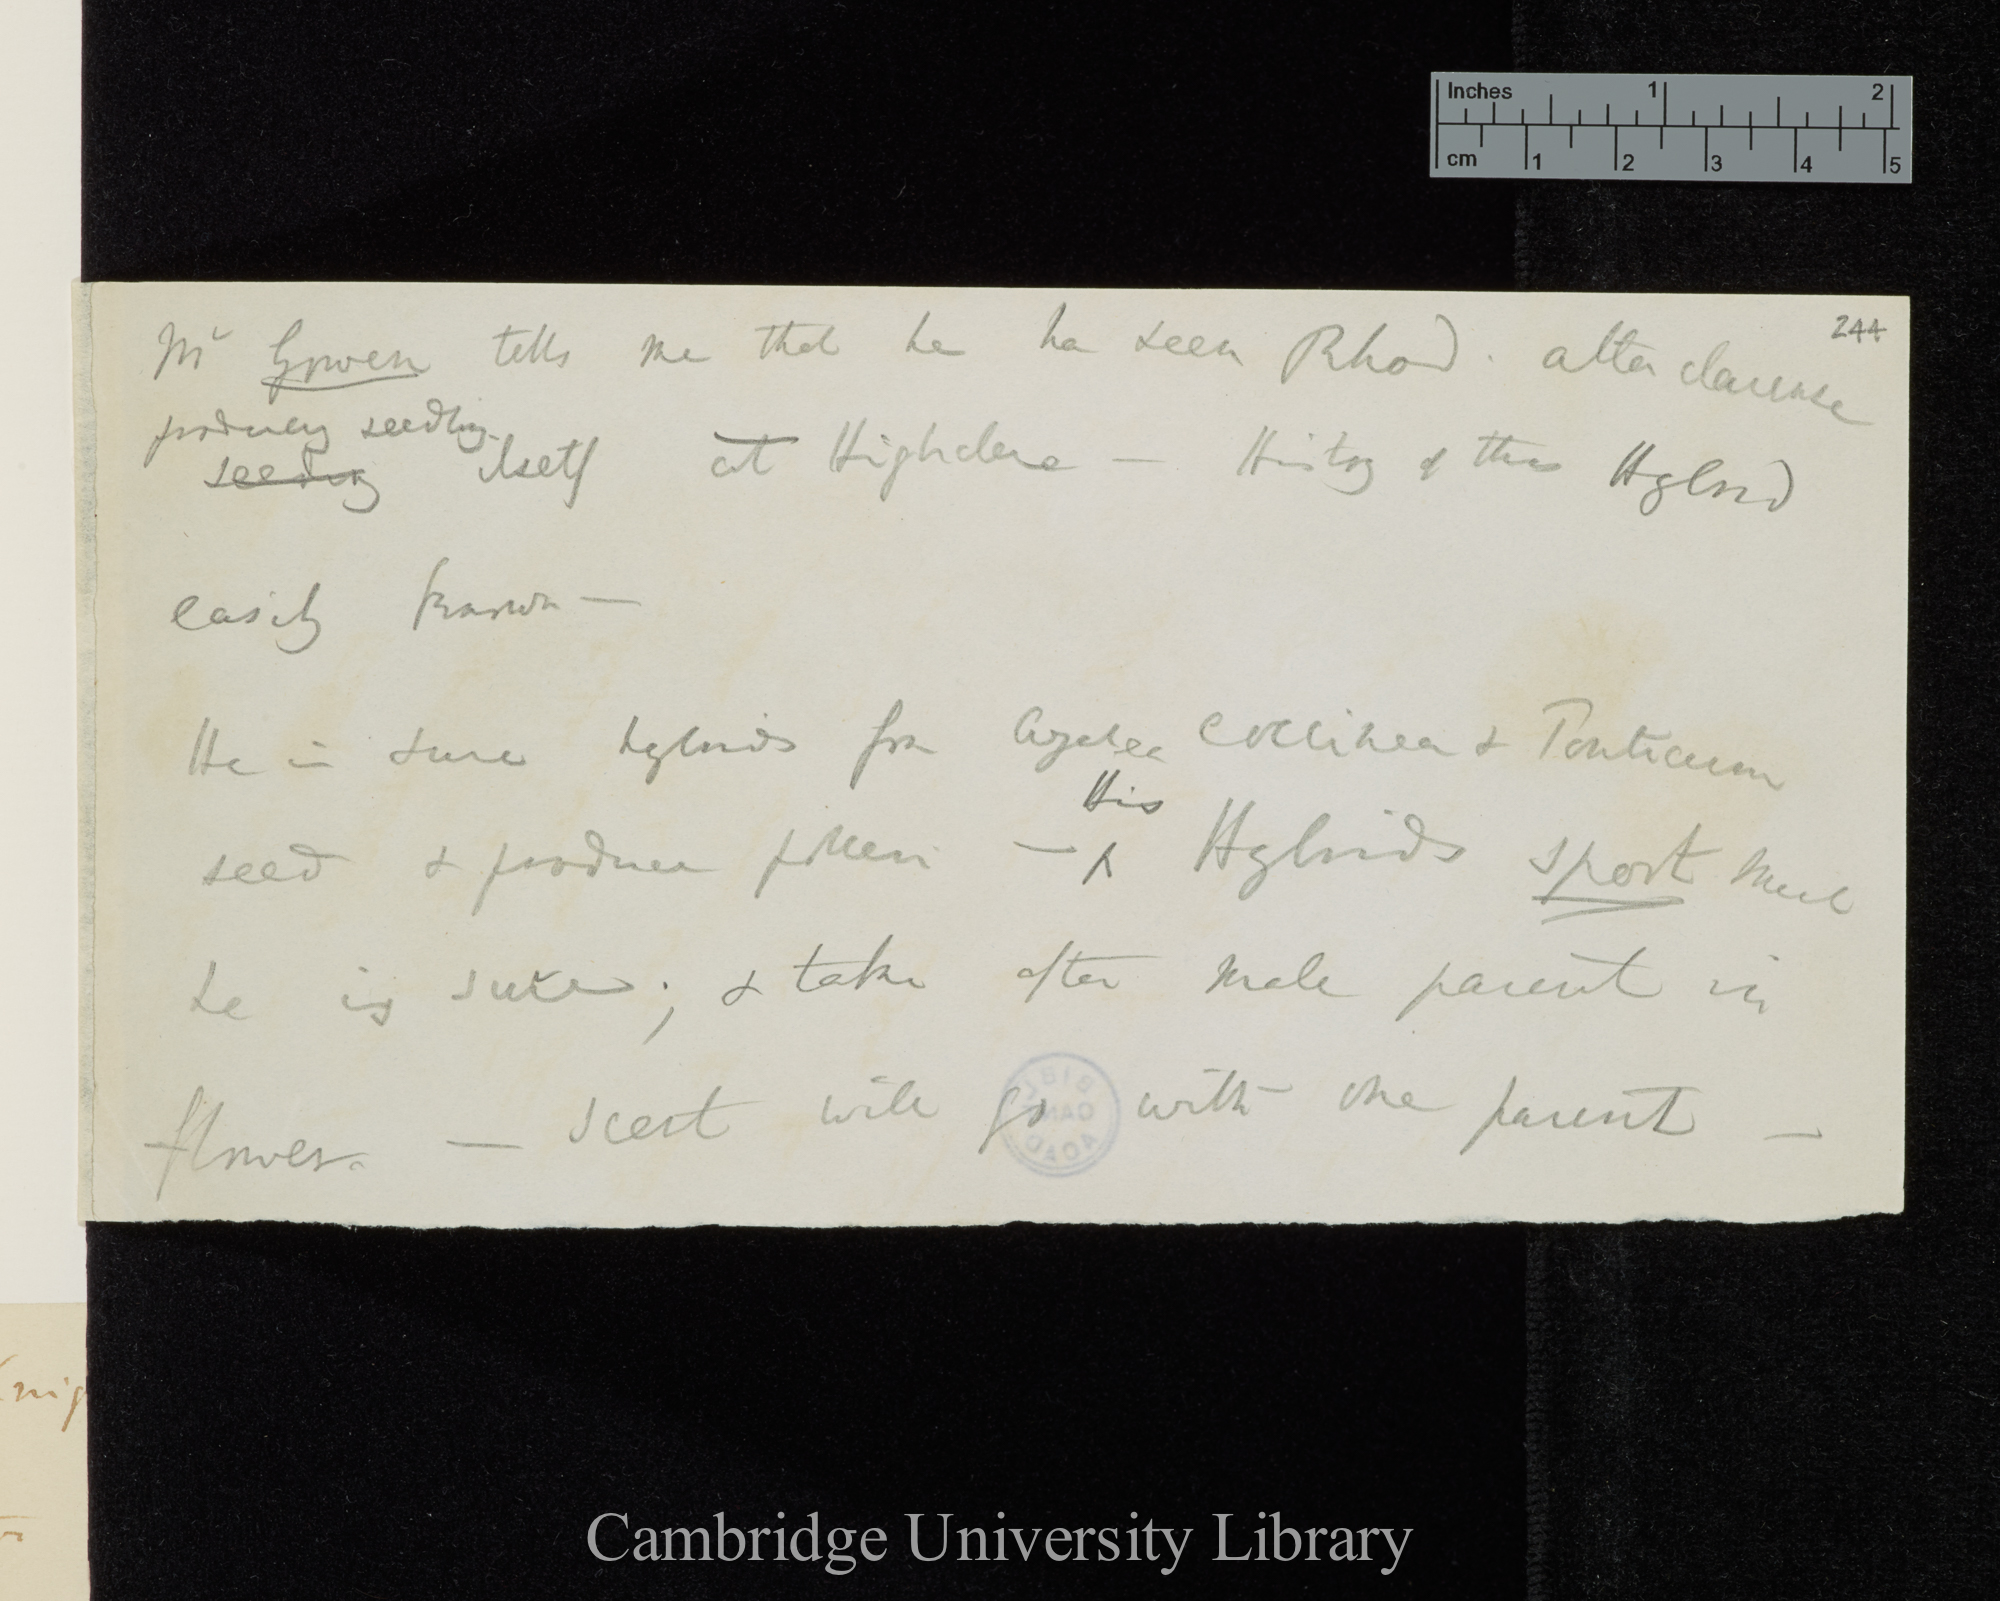 Inches 1 2
cm 1 2 3 4 5
244
Mr Gowen tells me that he has seen Rhod. alta clarense
producing seedling
seeding itself at Highclere — History of this Hybrid
easily known —
He is sure hybrids from Azalea coccinea & Ponticum
His
seed & produce pollen — ^ Hybrids sport much
he is sure; & take after male parent in
flower. — scent will go with one parent —
Cambridge University Library